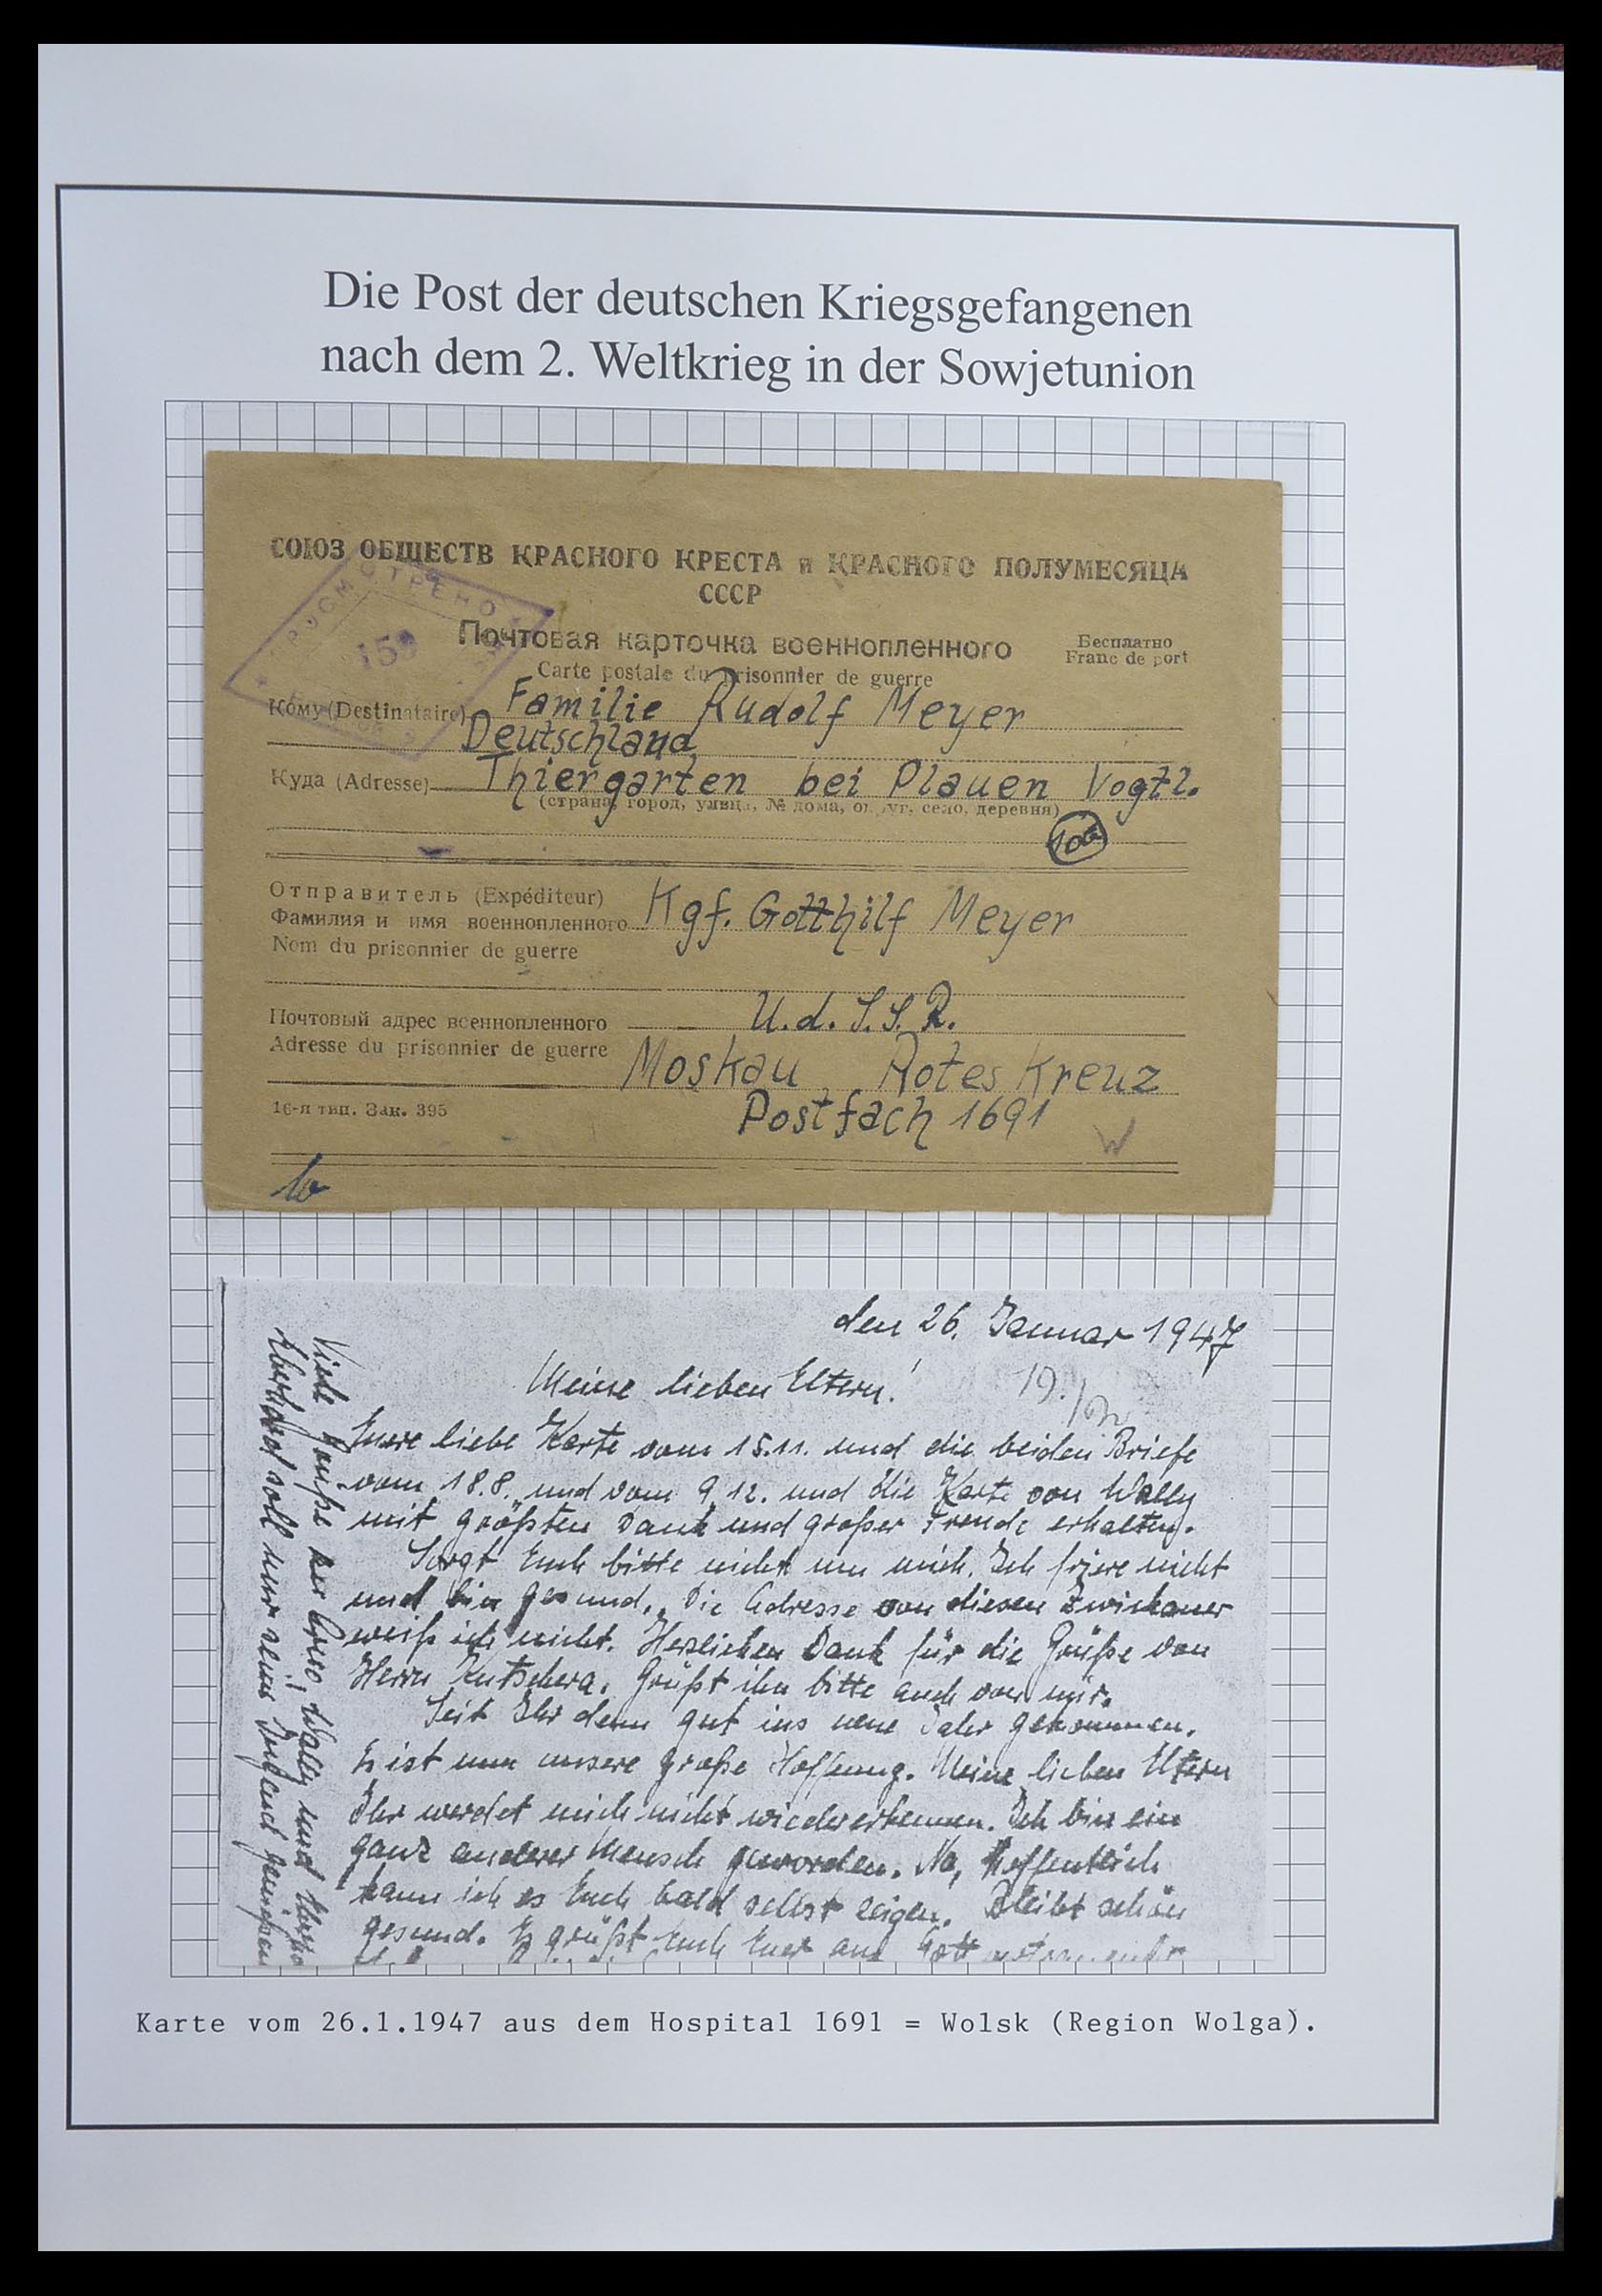 Die Post der deutschen Kriegsgefangenen
nach dem 2. Weltkrieg in der Sowjetunion
СОЮЗ ОБЩЕСТВ КРАСНОГО КРЕСТА и КРАСНОГО ПОЛУМЕСЯЦА
СССР
ПРОСМОТРЕНО
159
Почтовая карточка военнопленного
Бесплатно
Carte postale du prisonnier de guerre
Franc de port
Кому (Destinataire) Familie Rudolf Meyer
Deutschland
Куда (Adresse) Thiergarten bei Plauen Vogtl.
(страна, город, улица, № дома, округ, село, деревня)
10a
Отправитель (Expéditeur)
Фамилия и имя военнопленного Kgf. Gotthilf Meyer
Nom du prisonnier de guerre
U.d.S.S.R.
Почтовый адрес военнопленного
Adresse du prisonnier de guerre Moskau, Rotes Kreuz
16-я тип. Зак. 395
Postfach 1691
W
den 26. Januar 1947
Meine lieben Eltern!
Euere liebe Karte vom 15.11. und die beiden Briefe
vom 18.8. und vom 9.12. und die Karte von Wally
mit größten Dank und großer Freude erhalten.
Sorgt Euch bitte nicht um mich. Ich friere nicht
und bin gesund. Die Adresse von diesen Zwickauer
weiß ich nicht. Herzlichen Dank für die Grüße von
Herrn Kutschera. Grüßt ihn bitte auch von mir.
Seit Ihr denn gut ins neue Jahr gekommen.
Es ist nun unsere große Hoffnung. Meine lieben Eltern
Ihr werdet mich nicht wiedererkennen. Ich bin ein
ganz anderer Mensch geworden. Na, hoffentlich
kann ich es Euch bald selbst zeigen. Bleibt schön
gesund. Es grüßt Euch Euer an Gott
Viele Grüße Wally und
Eberhard soll nur seine Jugend genießen
Karte vom 26.1.1947 aus dem Hospital 1691 = Wolsk (Region Wolga).